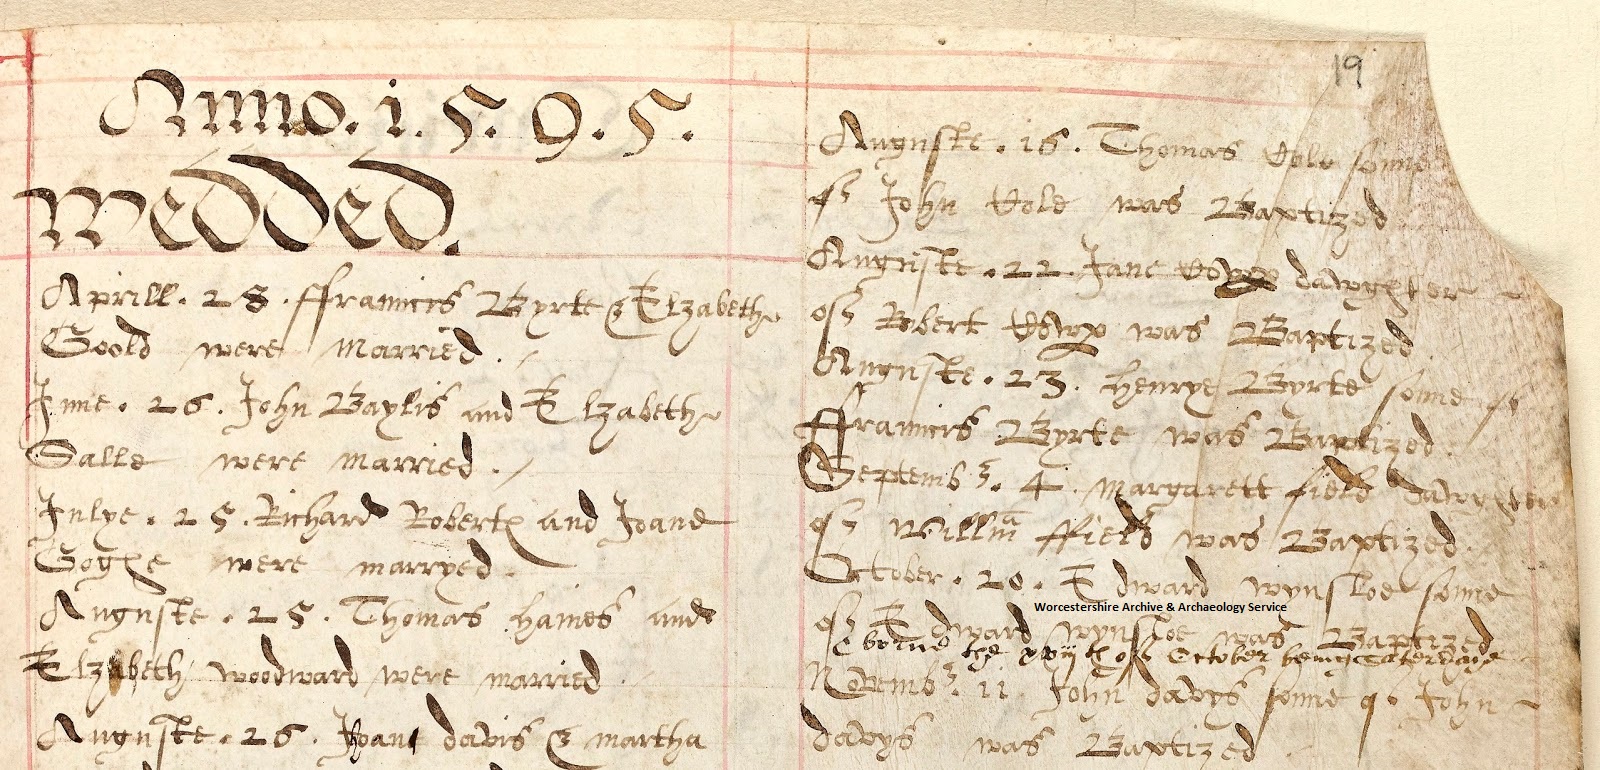 Anno. 1. 5. 9. 5.
Wedded.
Aprill. 28. ffrauncis Byrte & Elzabeth
Goold were married.
June. 26. John Baylis and Elzabeth
Salle were married.
Julye. 25. Richard Robert and Joane
were marryed.
Auguste. 25. Thomas haines and
Elzabeth woodward were married
Auguste. 26. davis & martha
19
Auguste. 16. Thomas Cole sonne
of John Cole was Baptized
Auguste. 22. Jane dawghter
of Robert was Baptized
Auguste. 23. henrye Byrte sonne of
ffrauncis Byrte was Baptized.
Septemb. 4. Margarett field dawghter
of Willm ffield was Baptized.
October. 20. Edward wynsloe sonne
Worcestershire Archive & Archaeology Service
of Edward wynsloe was Baptized
borne the xviijth of October being Saterdaye
Novemb. 11 John davys sonne of John
davys was Baptized